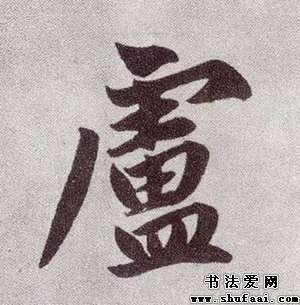 盧
书法爱网
www.shufaai.com